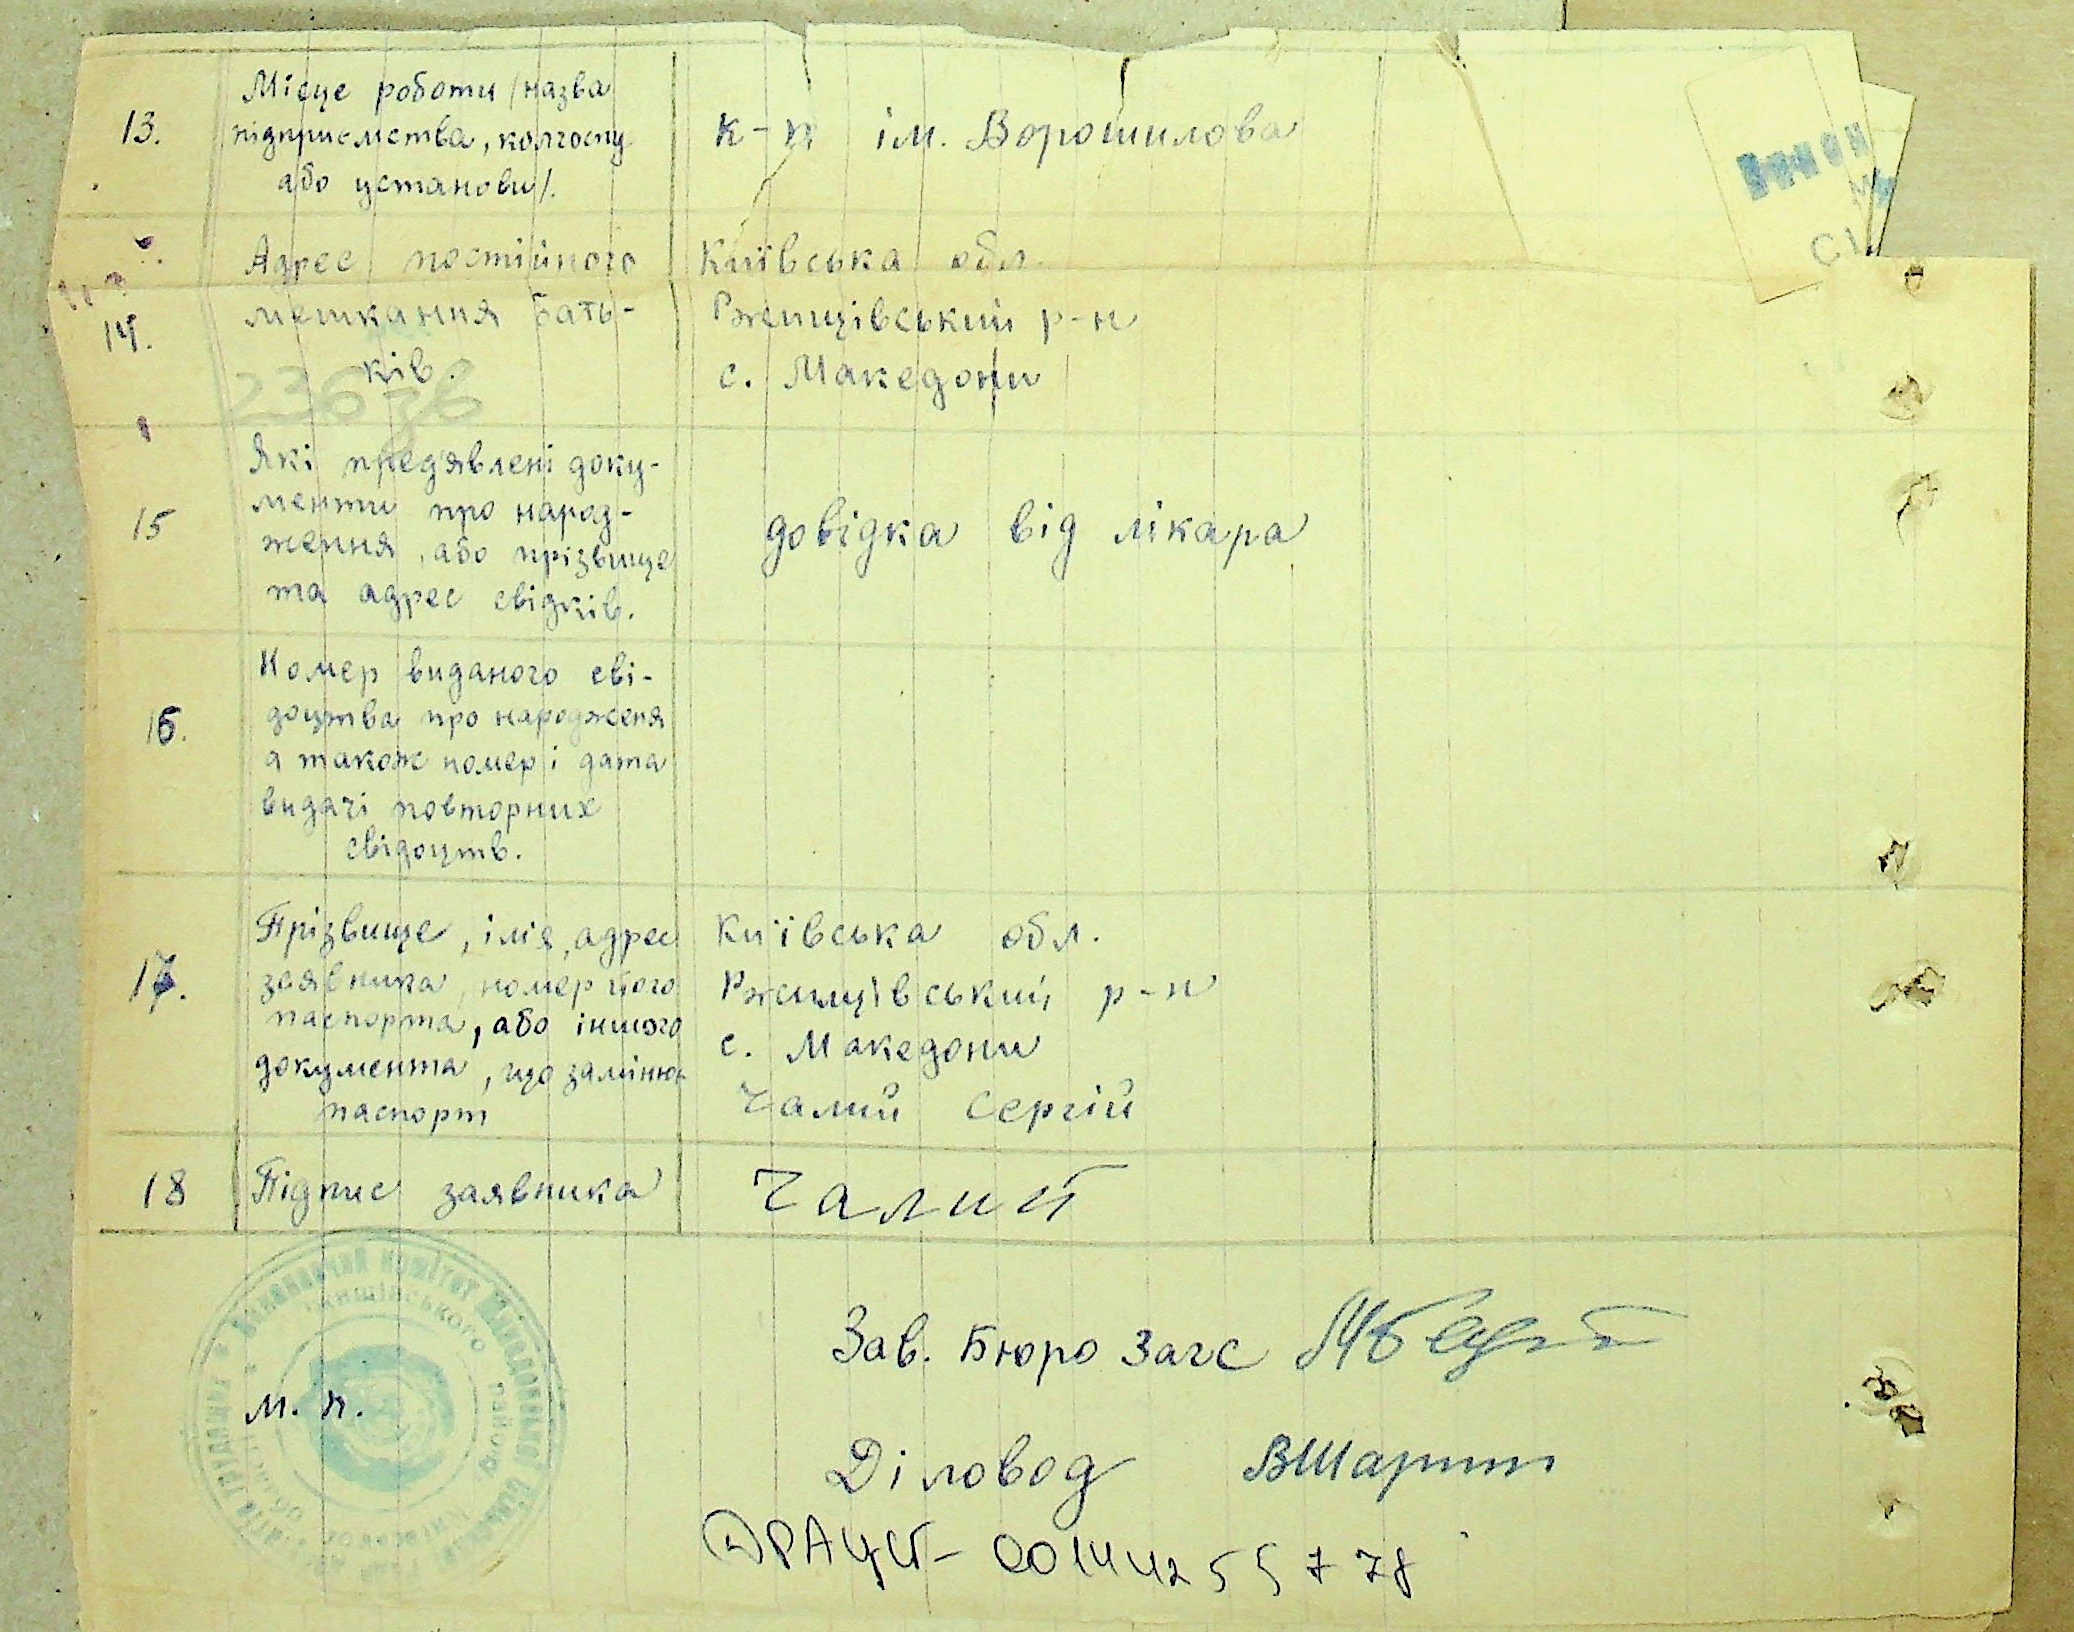 13.
Місце роботи /назва
підприємства, колгоспу
або установи/.
к-п ім. Ворошилова
14.
Адрес постійного
мешкання бать-
ків.
Київська обл.
Ржищівський р-н
с. Македони
15
Які предявлені доку-
менти про народ-
ження, або прізвище
та адрес свідків.
довідка від лікара
16.
Номер виданого сві-
доцтва про народженя
а також номер і дата
видачі повторних
свідоцтв.
17.
Прізвище, імя, адрес
заявника, номер його
паспорта, або іншого
документа, що замінює
паспорт
Київська обл.
Ржищівський р-н
с. Македони
Чалий Сергій
18
Підпис заявника
Чалий
Виконавчий комітет
району
м. п.
Зав. Бюро Загс
Діловод ВШарпт
ДРАЦСГ- 00144255778